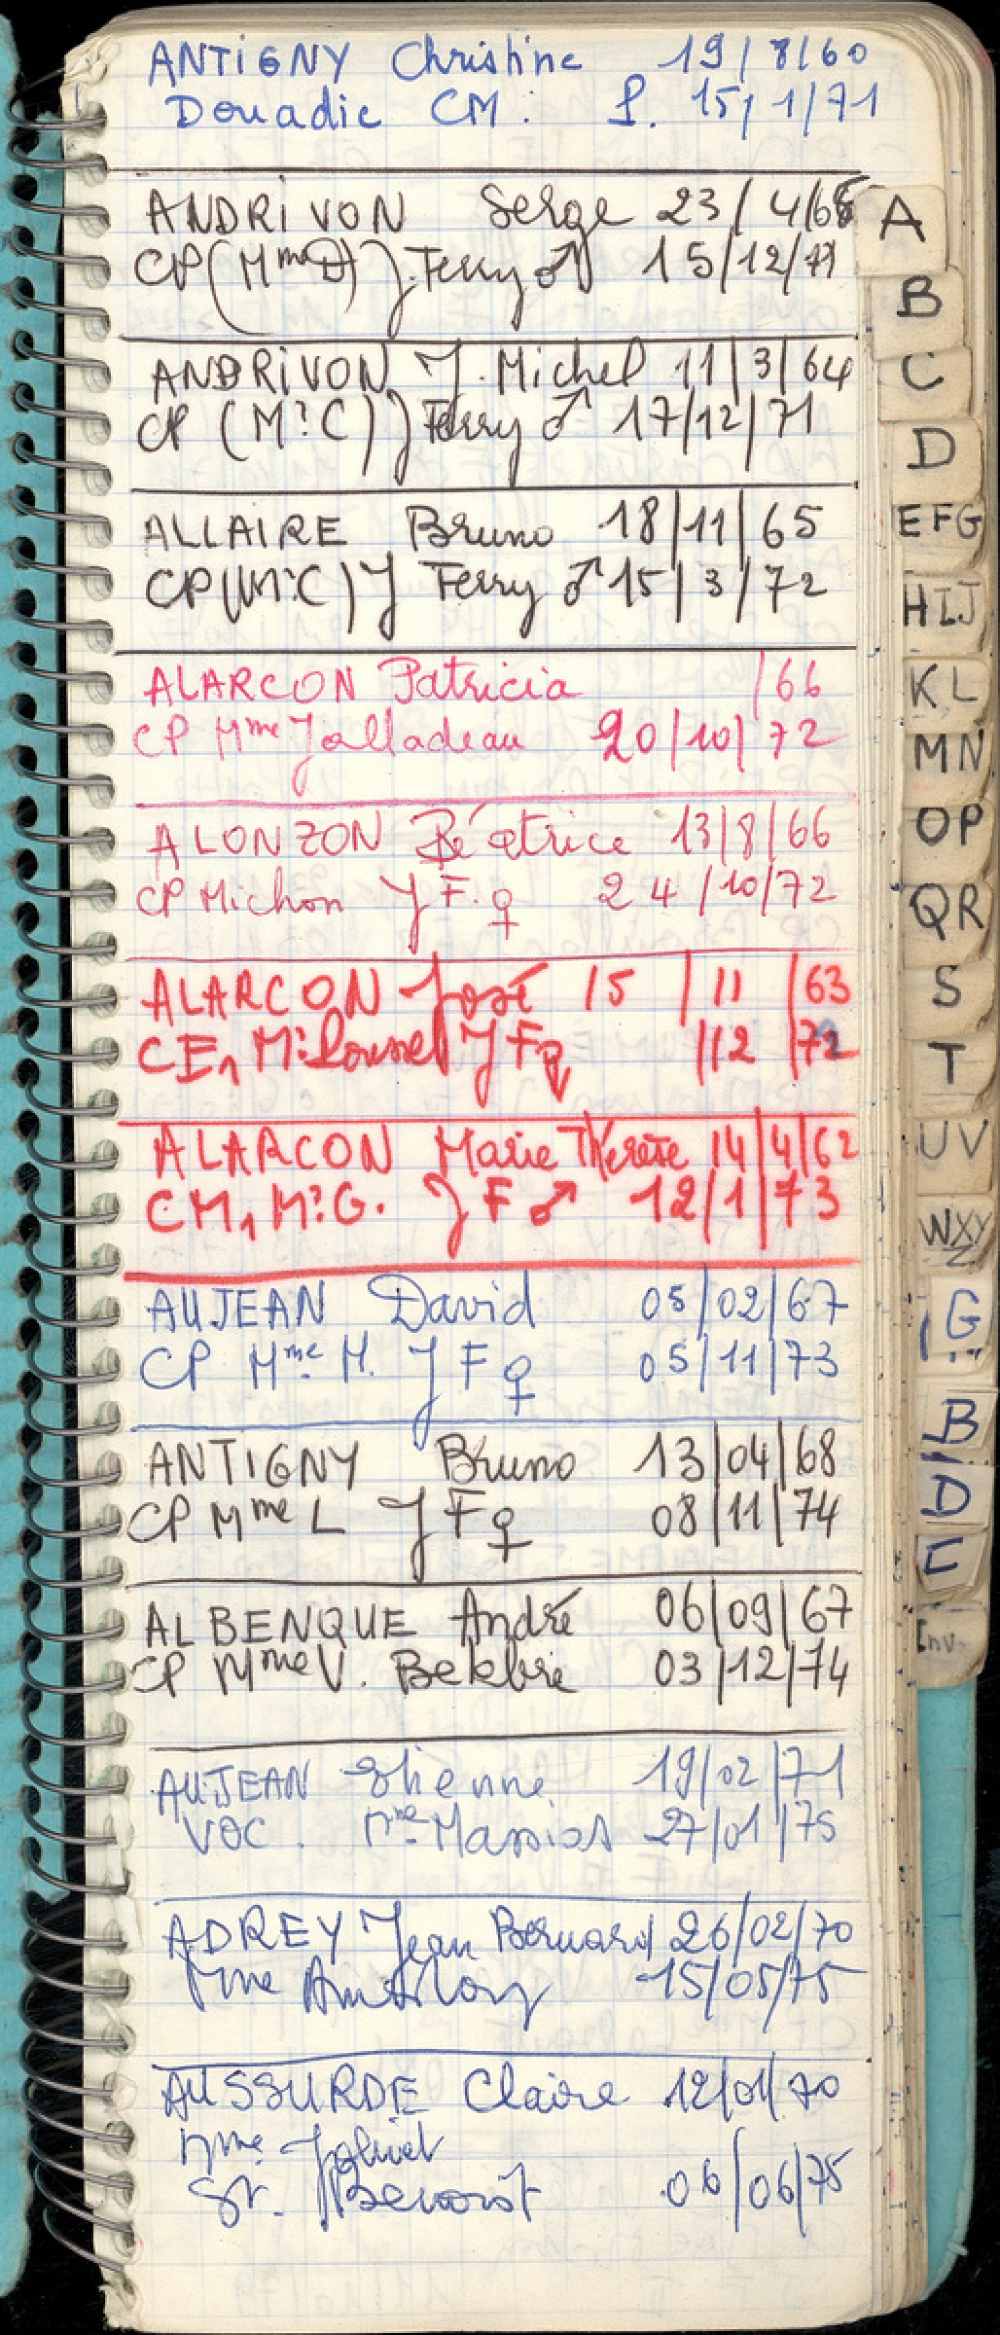 ANTIGNY Christine 19/8/60
Douadic CM. P. 15/1/71
ANDRiVON Serge 23/4/66
CP (Mme D) J. Ferry ♂ 15/12/71
ANDRiVON J. Michel 11/3/64
CP (Mr C) J Ferry ♂ 17/12/71
ALLAIRE Bruno 18/11/65
CP (Mr C) J Ferry ♂ 15/3/72
ALARCON Patricia /66
CP Mme Jalladeau 20/10/72
ALONZON Béatrice 13/8/66
CP Michon J F. ♀ 24/10/72
ALARCON José 15/11/63
CE1 Mr J F ♀ 1/12/72
ALARCON Marie Thérèse 14/4/62
CM1 Mr G. J F ♂ 12/1/73
AUJEAN David 05/02/67
CP Mme M. J F ♀ 05/11/73
ANTIGNY Bruno 13/04/68
CP Mme L J F ♀ 08/11/74
ALBENQUE André 06/09/67
CP Mme V. 03/12/74
AUJEAN Etienne 19/02/71
VOC. Mme 27/01/75
ADREY Jean Bernard 26/02/70
Mme 15/05/75
AUSSURDE Claire 12/01/70
Mme Joliet
St. Benoist 06/06/75
A
B
C
D
EFG
HIJ
KL
MN
OP
QR
S
T
UV
WXY
Z
G
B
D
E
Inv.